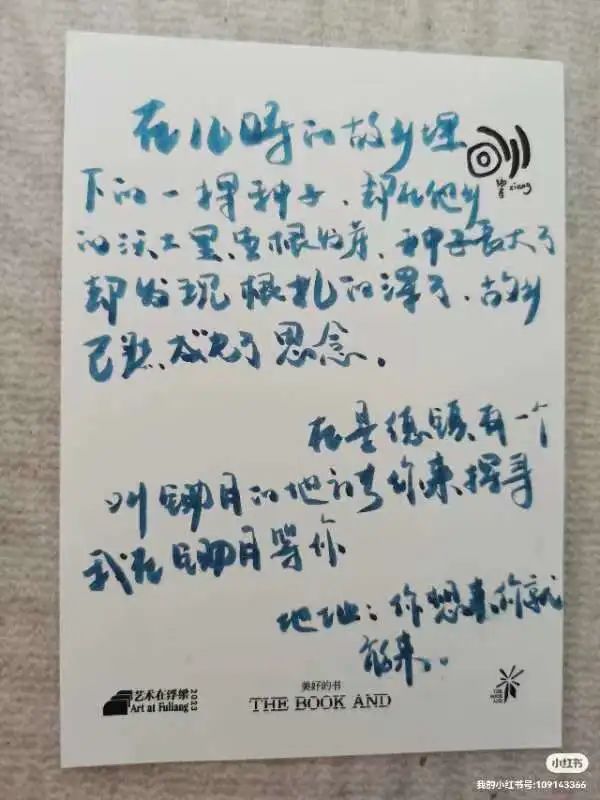 在儿时的故乡埋
下的一棵种子，却在他乡
的沃土里，生根发芽，种子长大了
却发现根扎的深了，故乡
已然成为了思念。
xiang
在景德镇，有一个
叫锄月的地方等你来探寻
我在锄月等你
地址：你想来你就
能来。
艺术在浮梁 2023
Art at Fuliang
美好的书
THE BOOK AND
THE BOOK AND
小红书
我的小红书号:109143366